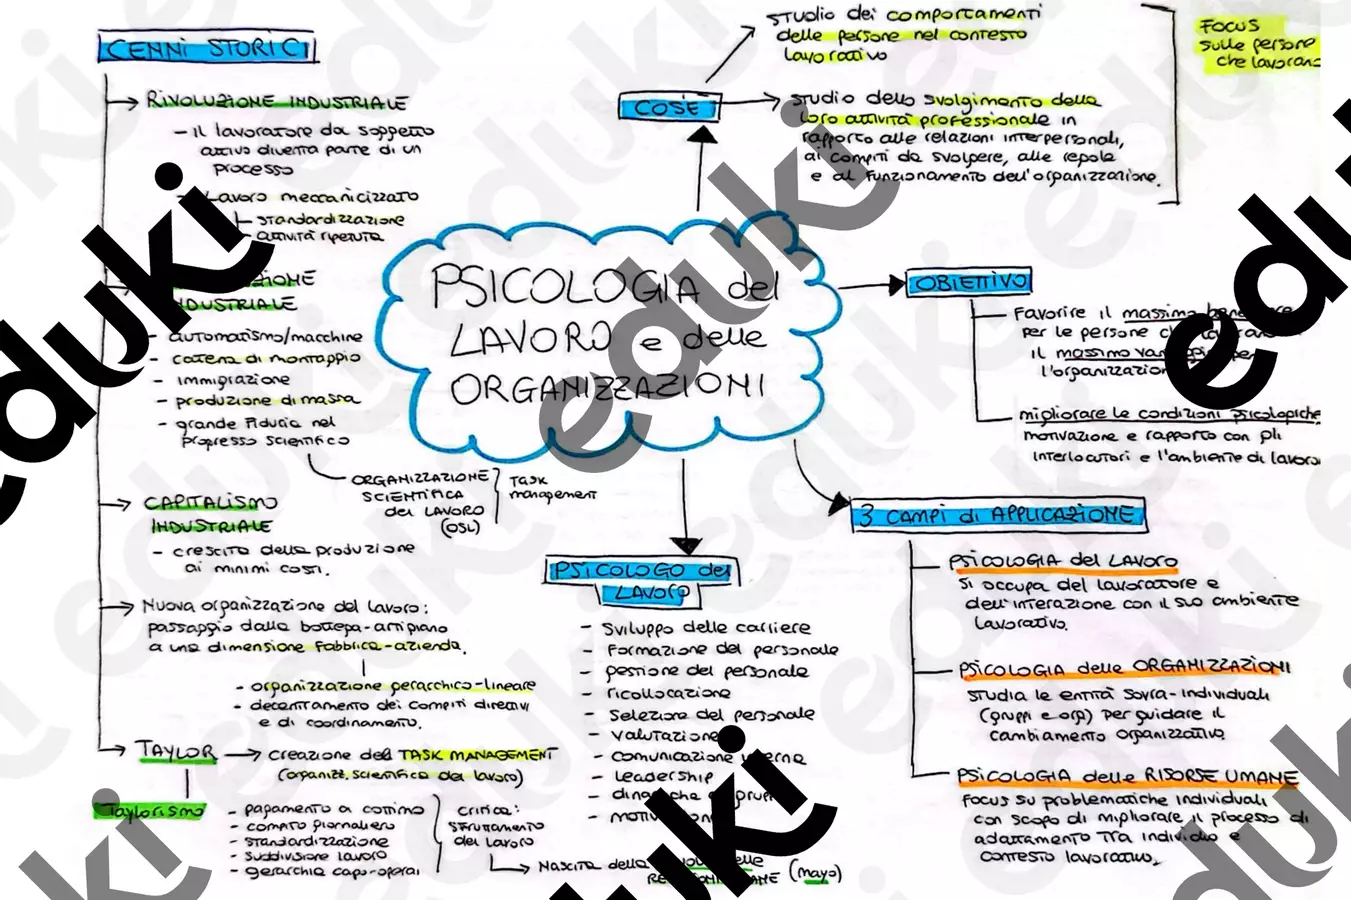 CENNI STORICI
RIVOLUZIONE INDUSTRIALE
- Il lavoratore da soggetto
attivo diventa parte di un
processo
- Lavoro meccanicizzato
standardizzazione
attività ripetuta
INDUSTRIALE
- automatismo/macchine
- catena di montaggio
- immigrazione
- produzione di massa
- grande fiducia nel
progresso scientifico
ORGANIZZAZIONE
SCIENTIFICA
del LAVORO
(OSL)
TASK
management
CAPITALISMO
INDUSTRIALE
- crescita della produzione
ai minimi costi.
Nuova organizzazione del lavoro:
passaggio dalla bottega-artigiano
a una dimensione fabbrica-azienda.
- organizzazione gerarchico-lineare
- decentramento dei compiti direttivi
e di coordinamento.
TAYLOR → creazione del TASK MANAGEMENT
(organizz. scientifica del lavoro)
Taylorismo
- pagamento a cottimo
- compito giornaliero
- standardizzazione
- suddivisione lavoro
- gerarchia capo-operai
critica:
sfruttamento
del lavoro
Nascita della
(mayo)
PSICOLOGIA del
LAVORO e delle
ORGANIZZAZIONI
COS'È
studio dei comportamenti
delle persone nel contesto
lavorativo
studio dello svolgimento della
loro attività professionale in
rapporto alle relazioni interpersonali,
ai compiti da svolgere, alle regole
e al funzionamento dell'organizzazione.
FOCUS
sulle persone
che lavorano
OBIETTIVO
Favorire il massimo
per le persone
il massimo
l'organizzazione
migliorare le condizioni psicologiche
motivazione e rapporto con gli
interlocutori e l'ambiente di lavoro
PSICOLOGO del
LAVORO
- Sviluppo delle carriere
- Formazione del personale
- gestione del personale
- ricollocazione
- Selezione del personale
- valutazione
- comunicazione interna
- leadership
3 CAMPI di APPLICAZIONE
PSICOLOGIA del LAVORO
Si occupa del lavoratore e
dell'interazione con il suo ambiente
lavorativo.
PSICOLOGIA delle ORGANIZZAZIONI
studia le entità sovra-individuali
(gruppi e org) per guidare il
cambiamento organizzativo
PSICOLOGIA delle RISORSE UMANE
Focus su problematiche individuali
con scopo di migliorare il processo di
adattamento tra individuo e
contesto lavorativo.
eduki
eduki
eduki